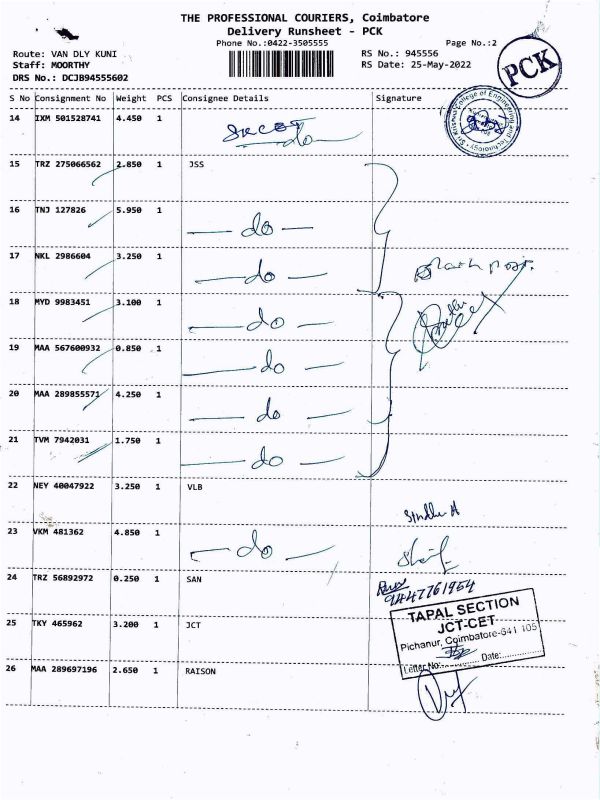 THE PROFESSIONAL COURIERS, Coimbatore
Delivery Runsheet - PCK
Phone No.:0422-3505555
Page No.:2
Route: VAN DLY KUNI
RS No.: 945556
Staff: MOORTHY
RS Date: 25-May-2022
DRS No.: DCJB94555602
PCK
S No Consignment No Weight PCS Consignee Details Signature
14 IXM 501528741 4.450 1 SKCET
do
15 TRZ 275066562 2.850 1 JSS
16 TNJ 127826 5.950 1 — do —
17 NKL 2986604 3.250 1 — do —
18 MYD 9983451 3.100 1 — do —
19 MAA 567600932 0.850 1 — do —
20 MAA 289855571 4.250 1 — do —
21 TVM 7942031 1.750 1 — do —
22 NEY 40047922 3.250 1 VLB
Sindhu A
23 VKM 481362 4.850 1 — do —
24 TRZ 56892972 0.250 1 SAN
9447761954
25 TKY 465962 3.200 1 JCT
TAPAL SECTION
JCT-CET
Pichanur, Coimbatore-641 105
Letter No: Date:
26 MAA 289697196 2.650 1 RAISON